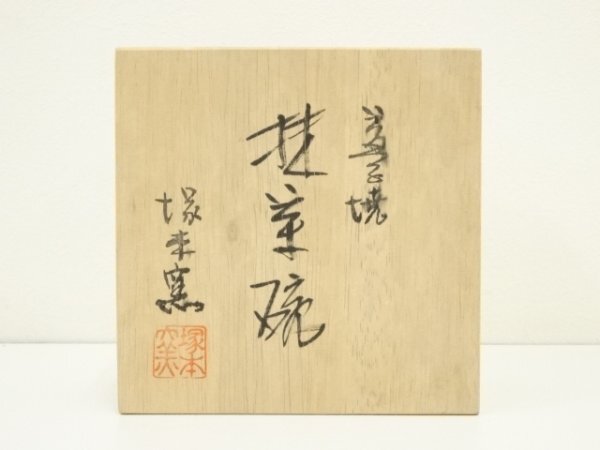 益子焼
抹茶碗
塚本窯
塚本窯